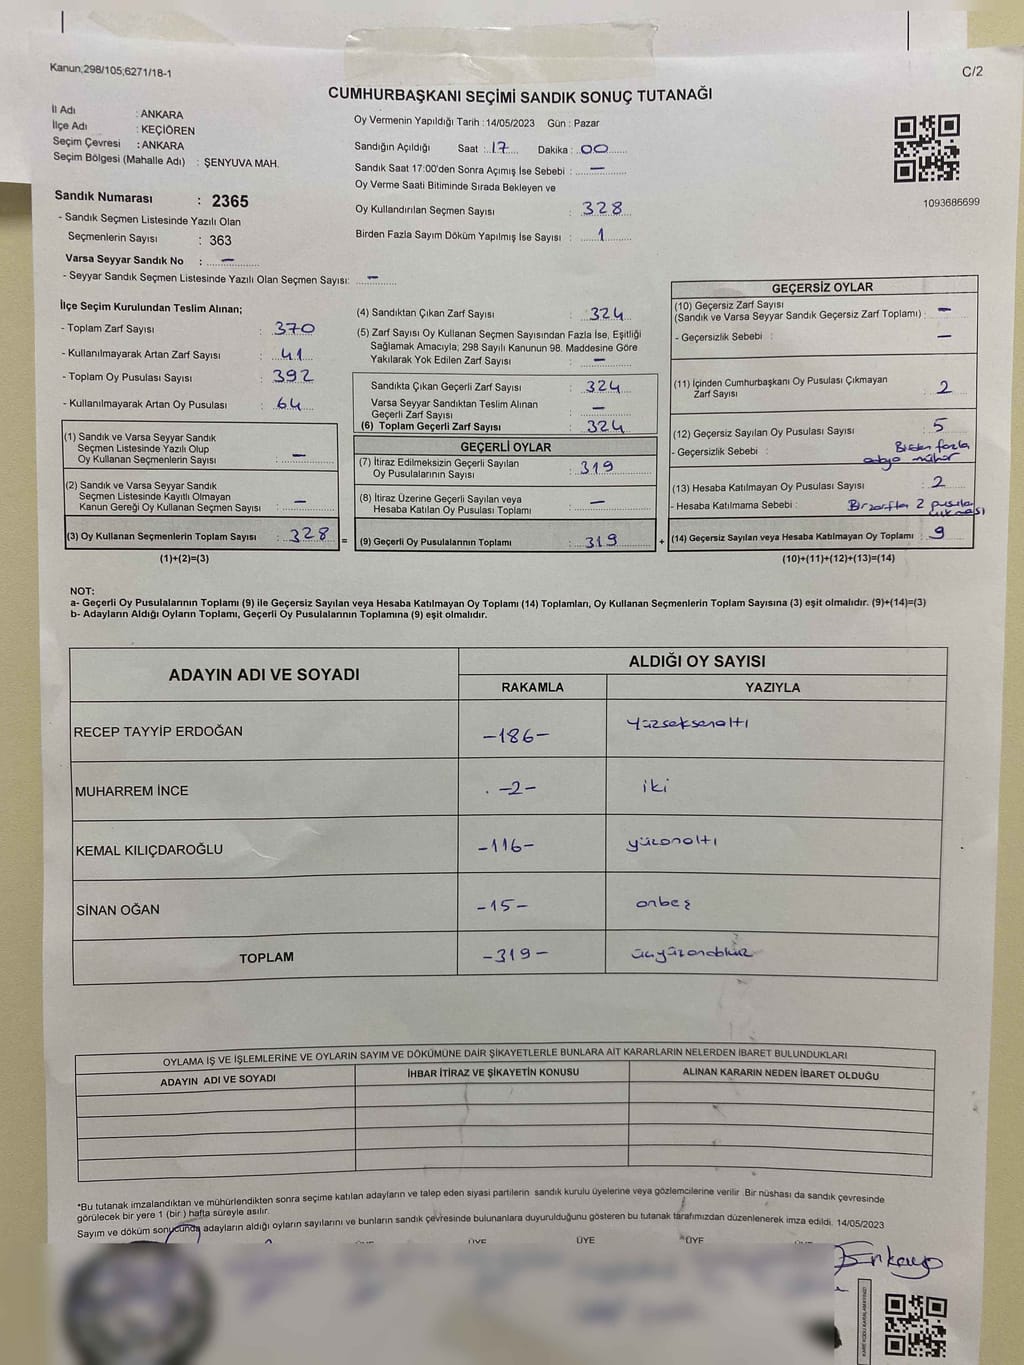 Kanun;298/105;6271/18-1
C/2
CUMHURBAŞKANI SEÇİMİ SANDIK SONUÇ TUTANAĞI
İl Adı : ANKARA
İlçe Adı : KEÇİÖREN
Seçim Çevresi : ANKARA
Seçim Bölgesi (Mahalle Adı) : ŞENYUVA MAH.
Oy Vermenin Yapıldığı Tarih : 14/05/2023 Gün : Pazar
Sandığın Açıldığı Saat : 17 Dakika : 00
Sandık Saat 17:00'den Sonra Açımış İse Sebebi : —
Oy Verme Saati Bitiminde Sırada Bekleyen ve
Oy Kullandırılan Seçmen Sayısı : 328
Birden Fazla Sayım Döküm Yapılmış İse Sayısı : 1
1093686699
Sandık Numarası : 2365
- Sandık Seçmen Listesinde Yazılı Olan
Seçmenlerin Sayısı : 363
Varsa Seyyar Sandık No : —
- Seyyar Sandık Seçmen Listesinde Yazılı Olan Seçmen Sayısı: —
İlçe Seçim Kurulundan Teslim Alınan;
- Toplam Zarf Sayısı : 370
- Kullanılmayarak Artan Zarf Sayısı : 41
- Toplam Oy Pusulası Sayısı : 392
- Kullanılmayarak Artan Oy Pusulası : 64
(1) Sandık ve Varsa Seyyar Sandık
Seçmen Listesinde Yazılı Olup
Oy Kullanan Seçmenlerin Sayısı : —
(2) Sandık ve Varsa Seyyar Sandık
Seçmen Listesinde Kayıtlı Olmayan
Kanun Gereği Oy Kullanan Seçmen Sayısı : —
(3) Oy Kullanan Seçmenlerin Toplam Sayısı : 328
(1)+(2)=(3)
(4) Sandıktan Çıkan Zarf Sayısı : 324
(5) Zarf Sayısı Oy Kullanan Seçmen Sayısından Fazla İse, Eşitliği
Sağlamak Amacıyla; 298 Sayılı Kanunun 98. Maddesine Göre
Yakılarak Yok Edilen Zarf Sayısı : —
Sandıkta Çıkan Geçerli Zarf Sayısı : 324
Varsa Seyyar Sandıktan Teslim Alınan
Geçerli Zarf Sayısı : —
(6) Toplam Geçerli Zarf Sayısı : 324
GEÇERLİ OYLAR
(7) İtiraz Edilmeksizin Geçerli Sayılan
Oy Pusulalarının Sayısı : 319
(8) İtiraz Üzerine Geçerli Sayılan veya
Hesaba Katılan Oy Pusulası Toplamı : —
= (9) Geçerli Oy Pusulalarının Toplamı : 319
GEÇERSİZ OYLAR
(10) Geçersiz Zarf Sayısı
(Sandık ve Varsa Seyyar Sandık Geçersiz Zarf Toplamı) : —
- Geçersizlik Sebebi : —
(11) İçinden Cumhurbaşkanı Oy Pusulası Çıkmayan
Zarf Sayısı : 2
(12) Geçersiz Sayılan Oy Pusulası Sayısı : 5
- Geçersizlik Sebebi : Birden fazla
mühür
(13) Hesaba Katılmayan Oy Pusulası Sayısı : 2
- Hesaba Katılmama Sebebi : Bir zarftan 2 pusula
çıkması
+ (14) Geçersiz Sayılan veya Hesaba Katılmayan Oy Toplamı : 9
(10)+(11)+(12)+(13)=(14)
NOT:
a- Geçerli Oy Pusulalarının Toplamı (9) ile Geçersiz Sayılan veya Hesaba Katılmayan Oy Toplamı (14) Toplamları, Oy Kullanan Seçmenlerin Toplam Sayısına (3) eşit olmalıdır. (9)+(14)=(3)
b- Adayların Aldığı Oyların Toplamı, Geçerli Oy Pusulalarının Toplamına (9) eşit olmalıdır.
ADAYIN ADI VE SOYADI
ALDIĞI OY SAYISI
RAKAMLA YAZIYLA
RECEP TAYYİP ERDOĞAN -186- yüzseksenaltı
MUHARREM İNCE -2- iki
KEMAL KILIÇDAROĞLU -116- yüzonaltı
SİNAN OĞAN -15- onbeş
TOPLAM -319- üçyüzondokuz
OYLAMA İŞ VE İŞLEMLERİNE VE OYLARIN SAYIM VE DÖKÜMÜNE DAİR ŞİKAYETLERLE BUNLARA AİT KARARLARIN NELERDEN İBARET BULUNDUKLARI
ADAYIN ADI VE SOYADI İHBAR İTİRAZ VE ŞİKAYETİN KONUSU ALINAN KARARIN NEDEN İBARET OLDUĞU
*Bu tutanak imzalandıktan ve mühürlendikten sonra seçime katılan adayların ve talep eden siyasi partilerin sandık kurulu üyelerine veya gözlemcilerine verilir Bir nüshası da sandık çevresinde
görülecek bir yere 1 (bir ) hafta süreyle asılır.
Sayım ve döküm sonucunda adayların aldığı oyların sayılarını ve bunların sandık çevresinde bulunanlara duyurulduğunu gösteren bu tutanak tarafımızdan düzenlenerek imza edildi. 14/05/2023
ÜYE ÜYE ÜYE